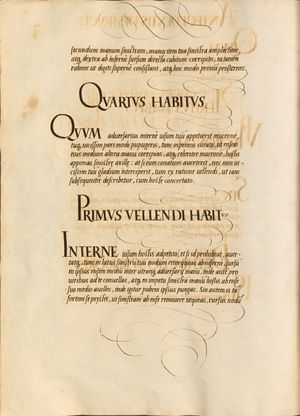 secundum manum sinistram, manu item tua sinistra amplectitor,
atq, dextra ab inferne sursum directa cubitum corripito, ea tamen
ratione ut digiti superne consistant, atq, hoc modo premis prosternes.
QVARTVS HABITVS
QVVM adversarius interne usum tuis appetierit mucrone,
tuq, uicissim pari modo pupugeris, tunc in primis curato, ut ensem
eius medium altera manu corripias, atq, celeriter mucrone, hostis
appenas sinistre axille: at si eum conatum averterit, nec cum
eiscum tuis gladium interceperit, tum ex ratione uellendi, ut iam
subsequenter describetur, cum hoste concertato.
PRIMVS VELLENDI HABIT
INTERNE uisum hostis adpetito, et si id prohibeat, auer
tatq, tunc in latus sinistri tui nodum retorqueas ab inferne, sursu
in ipsius ensem medij inter utranq, adversarij manus, inde auxte pro
uiribus ad te conuellas, atq, eo impetu sinistra manu hostis ab ense
suo medio auellis, inde igitur pubem ipsius pungas. Sin autem is te
fortem se presset, ut sinistram ab ense remouere nequeas, rursus nodū